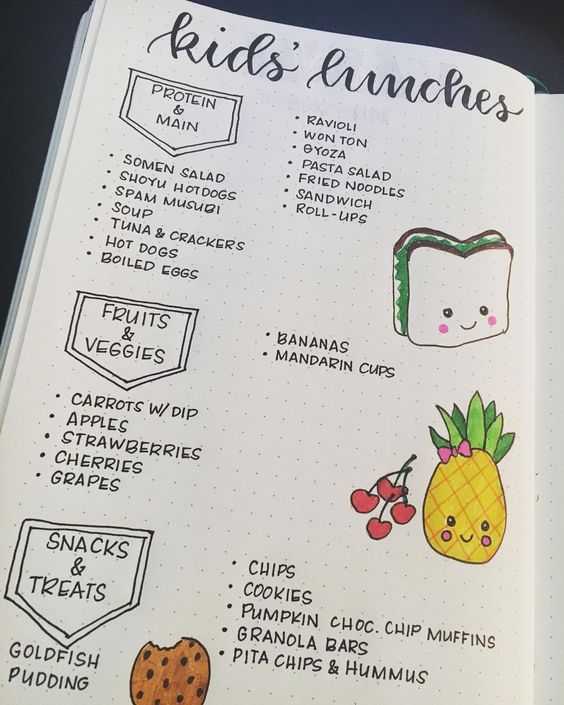 kids' lunches
PROTEIN
&
MAIN
• SOMEN SALAD
• SHOYU HOTDOGS
• SPAM MUSUBI
• SOUP
• TUNA & CRACKERS
• HOT DOGS
• BOILED EGGS
• RAVIOLI
• WON TON
• GYOZA
• PASTA SALAD
• FRIED NOODLES
• SANDWICH
• ROLL-UPS
FRUITS
&
VEGGIES
• CARROTS W/ DIP
• APPLES
• STRAWBERRIES
• CHERRIES
• GRAPES
• BANANAS
• MANDARIN CUPS
SNACKS
&
TREATS
GOLDFISH
PUDDING
• CHIPS
• COOKIES
• PUMPKIN CHOC. CHIP MUFFINS
• GRANOLA BARS
• PITA CHIPS & HUMMUS